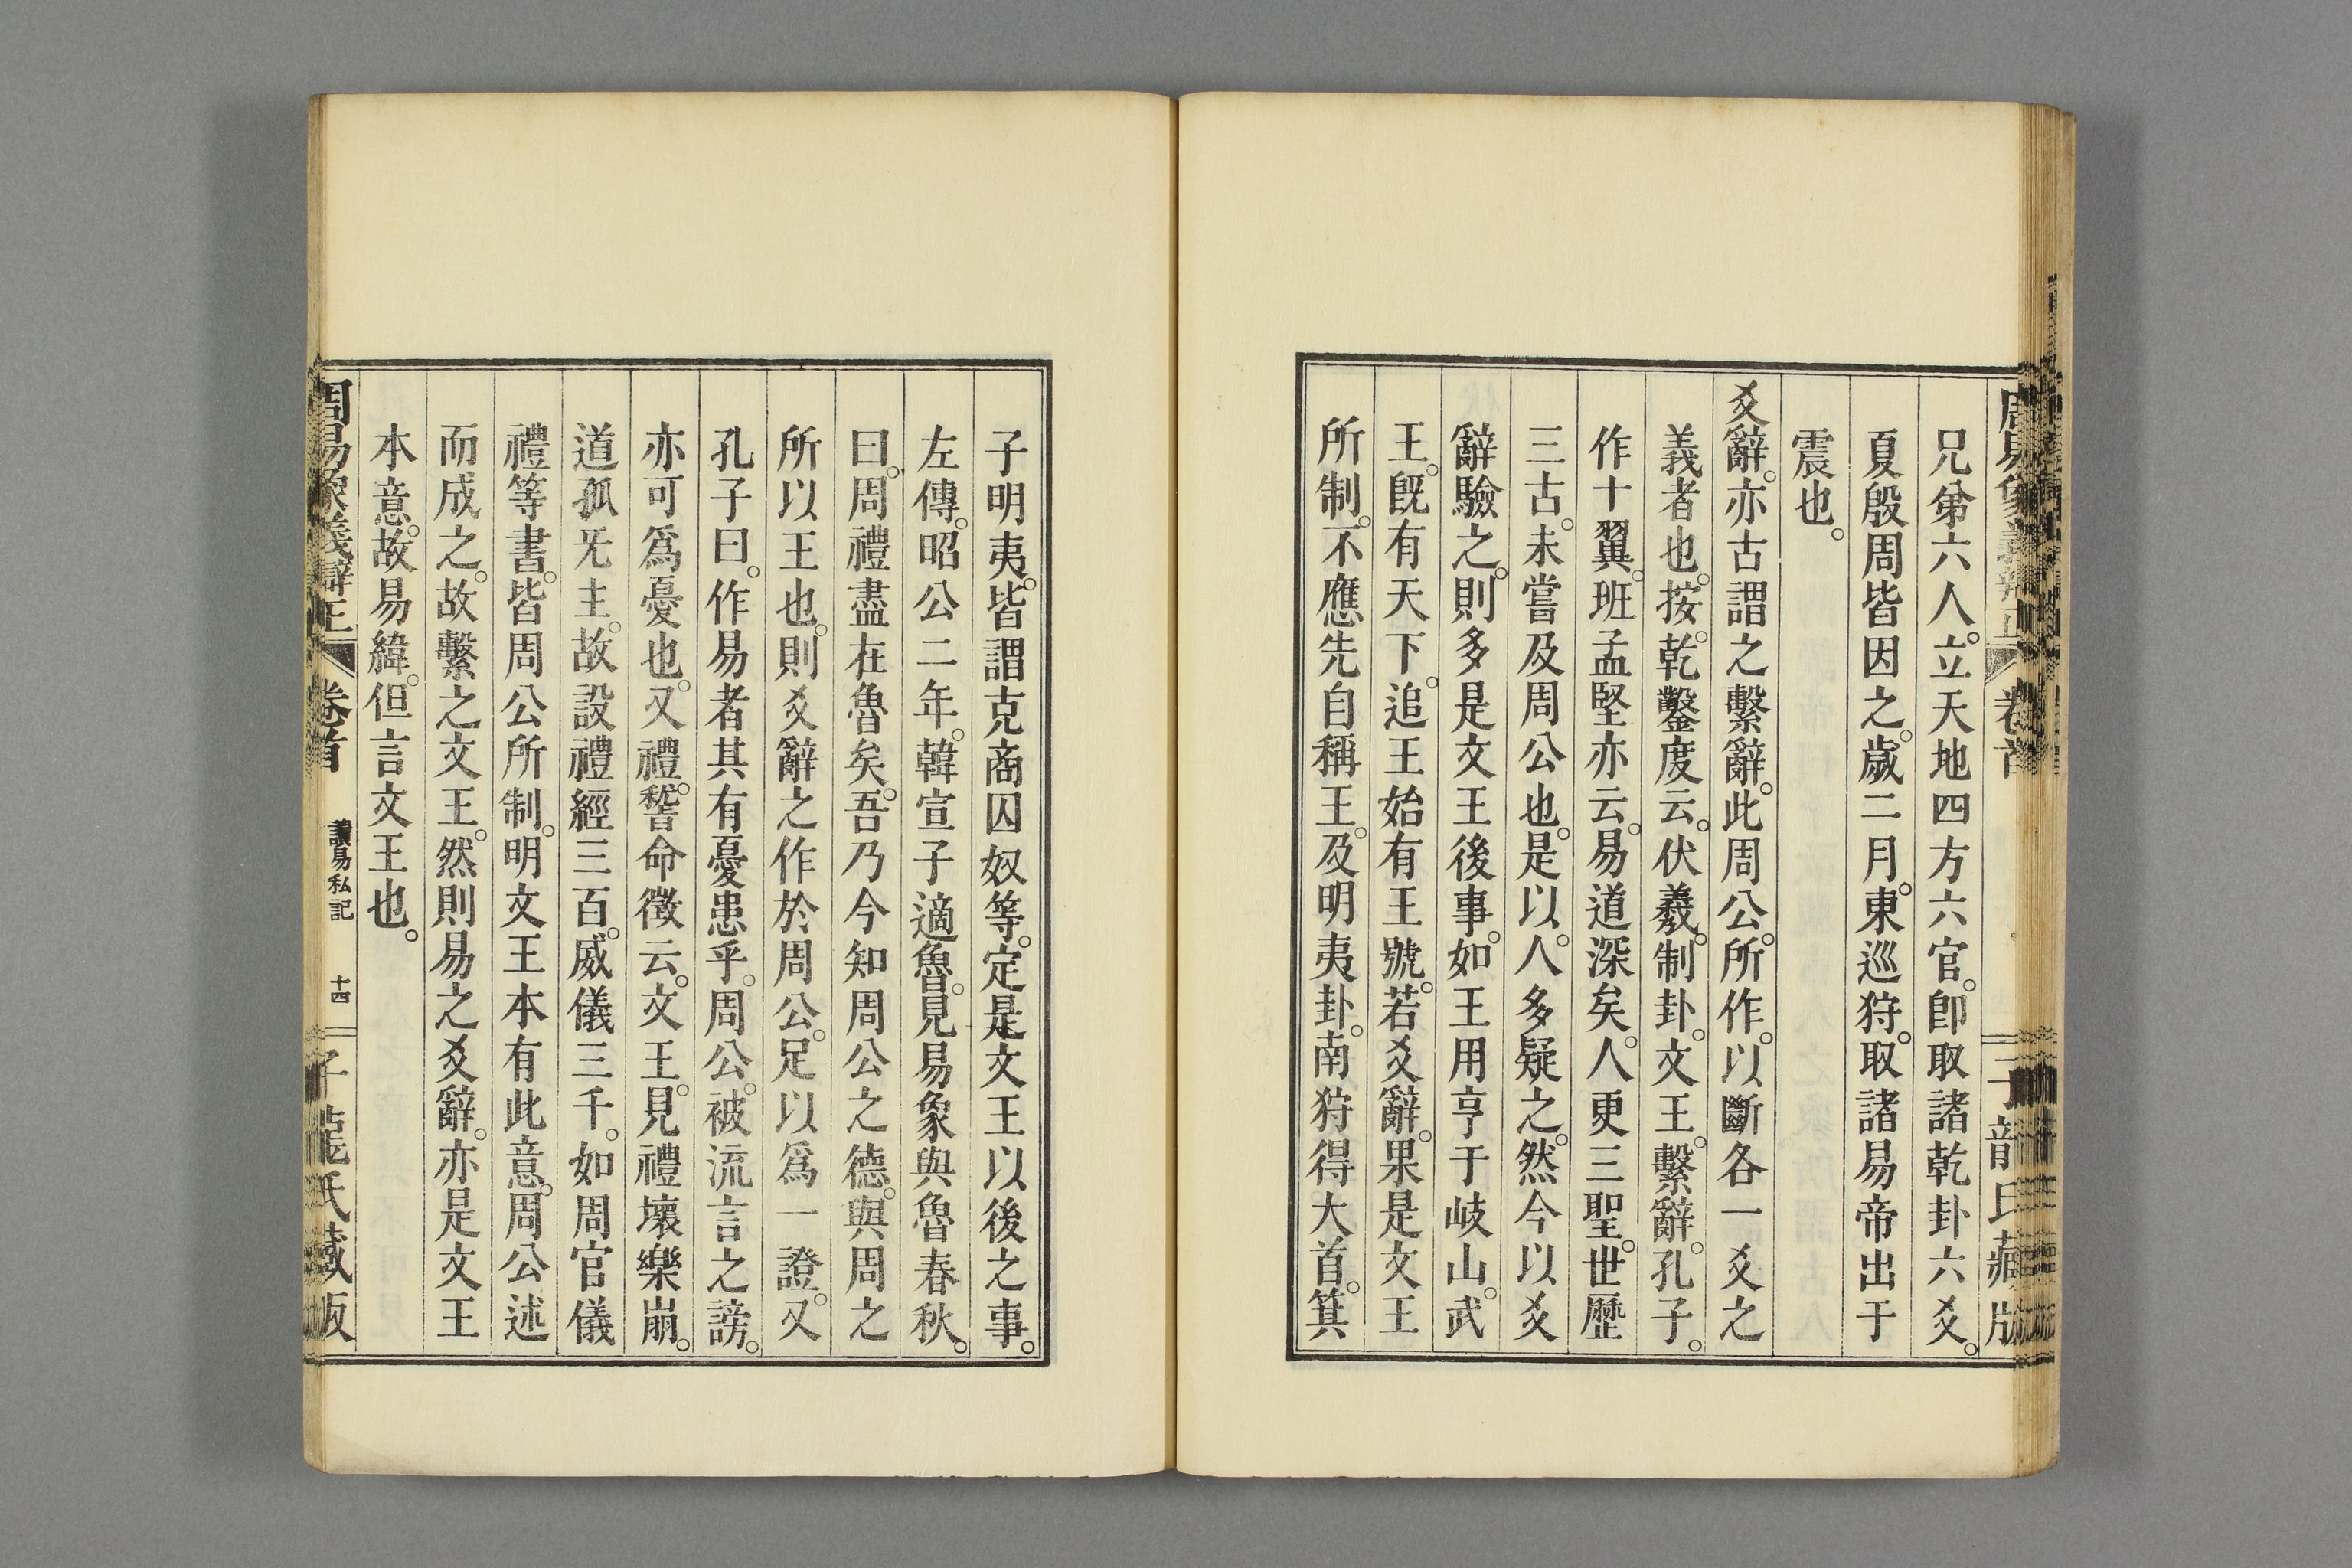 兄弟六人。立天地四方六官。卽取諸乾卦六爻。
夏殷周皆因之。歲二月。東巡狩。取諸易帝出于
震也。
爻辭。亦古謂之繫辭。此周公。所作。以斷各一爻之
義者也。按。乾鑿度云。伏羲。制卦。文王。繫辭。孔子。
作十翼。班孟堅亦云。易道深矣。人更三聖。世歷
三古。未嘗及周公也。是以。人多疑之。然今以爻
辭驗之。則多是文王後事。如王用亨于岐山。武
王。旣有天下。追王始有王號。若爻辭。果是文王
所制。不應先自稱王。及明夷卦。南狩得大首。箕
子明夷。皆謂克商囚奴等。定是文王以後之事。
左傳。昭公二年。韓宣子適魯。見易象與魯春秋。
曰。周禮盡在魯矣。吾乃今知周公之德。與周之
所以王也。則爻辭之作於周公。足以爲一證。又
孔子曰。作易者其有憂患乎。周公。被流言之謗。
亦可爲憂也。又禮。稽命徵云。文王。見禮壞樂崩。
道孤旡主。故設禮經三百。威儀三千。如周官儀
禮等書。皆周公所制。明文王本有此意。周公述
而成之。故繫之文王。然則易之爻辭。亦是文王
本意。故易緯。但言文王也。
周易象義辯正 卷首 讀易私記 十四 子龍氏藏版